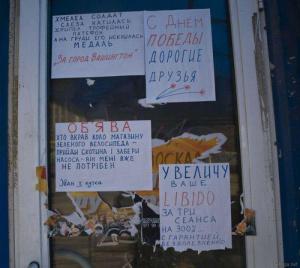 ХМЕЛЕЛ СОЛДАТ
СЛЕЗА КАТИЛАСЬ
ХРИПЕЛ ТРОФЕЙНЫЙ
ПАТЕФОН
А НА ГРУДИ ЕГО
МЕДАЛЬ
"ЗА ГОРОД ВАШИНГТОН"
С ДНЕМ
ПОБЕДЫ
ДОРОГИЕ
ДРУЗЬЯ
ОБ'ЯВА
ХТО ВКРАВ КОЛО МАГАЗИНУ
ЗЕЛЕНОГО ВЕЛОСИПЕДА –
ПРИЙДИ СКОТИНА І ЗАБЕРИ
НАСОСА – ВІН МЕНІ ВЖЕ
НЕ ПОТРІБЕН
Іван з кутка
ОСКА
УВЕЛИЧУ
ВАШЕ
LIBIDO
ЗА ТРИ
СЕАНСА
НА 300%
С ГАРАНТИЕЙ,